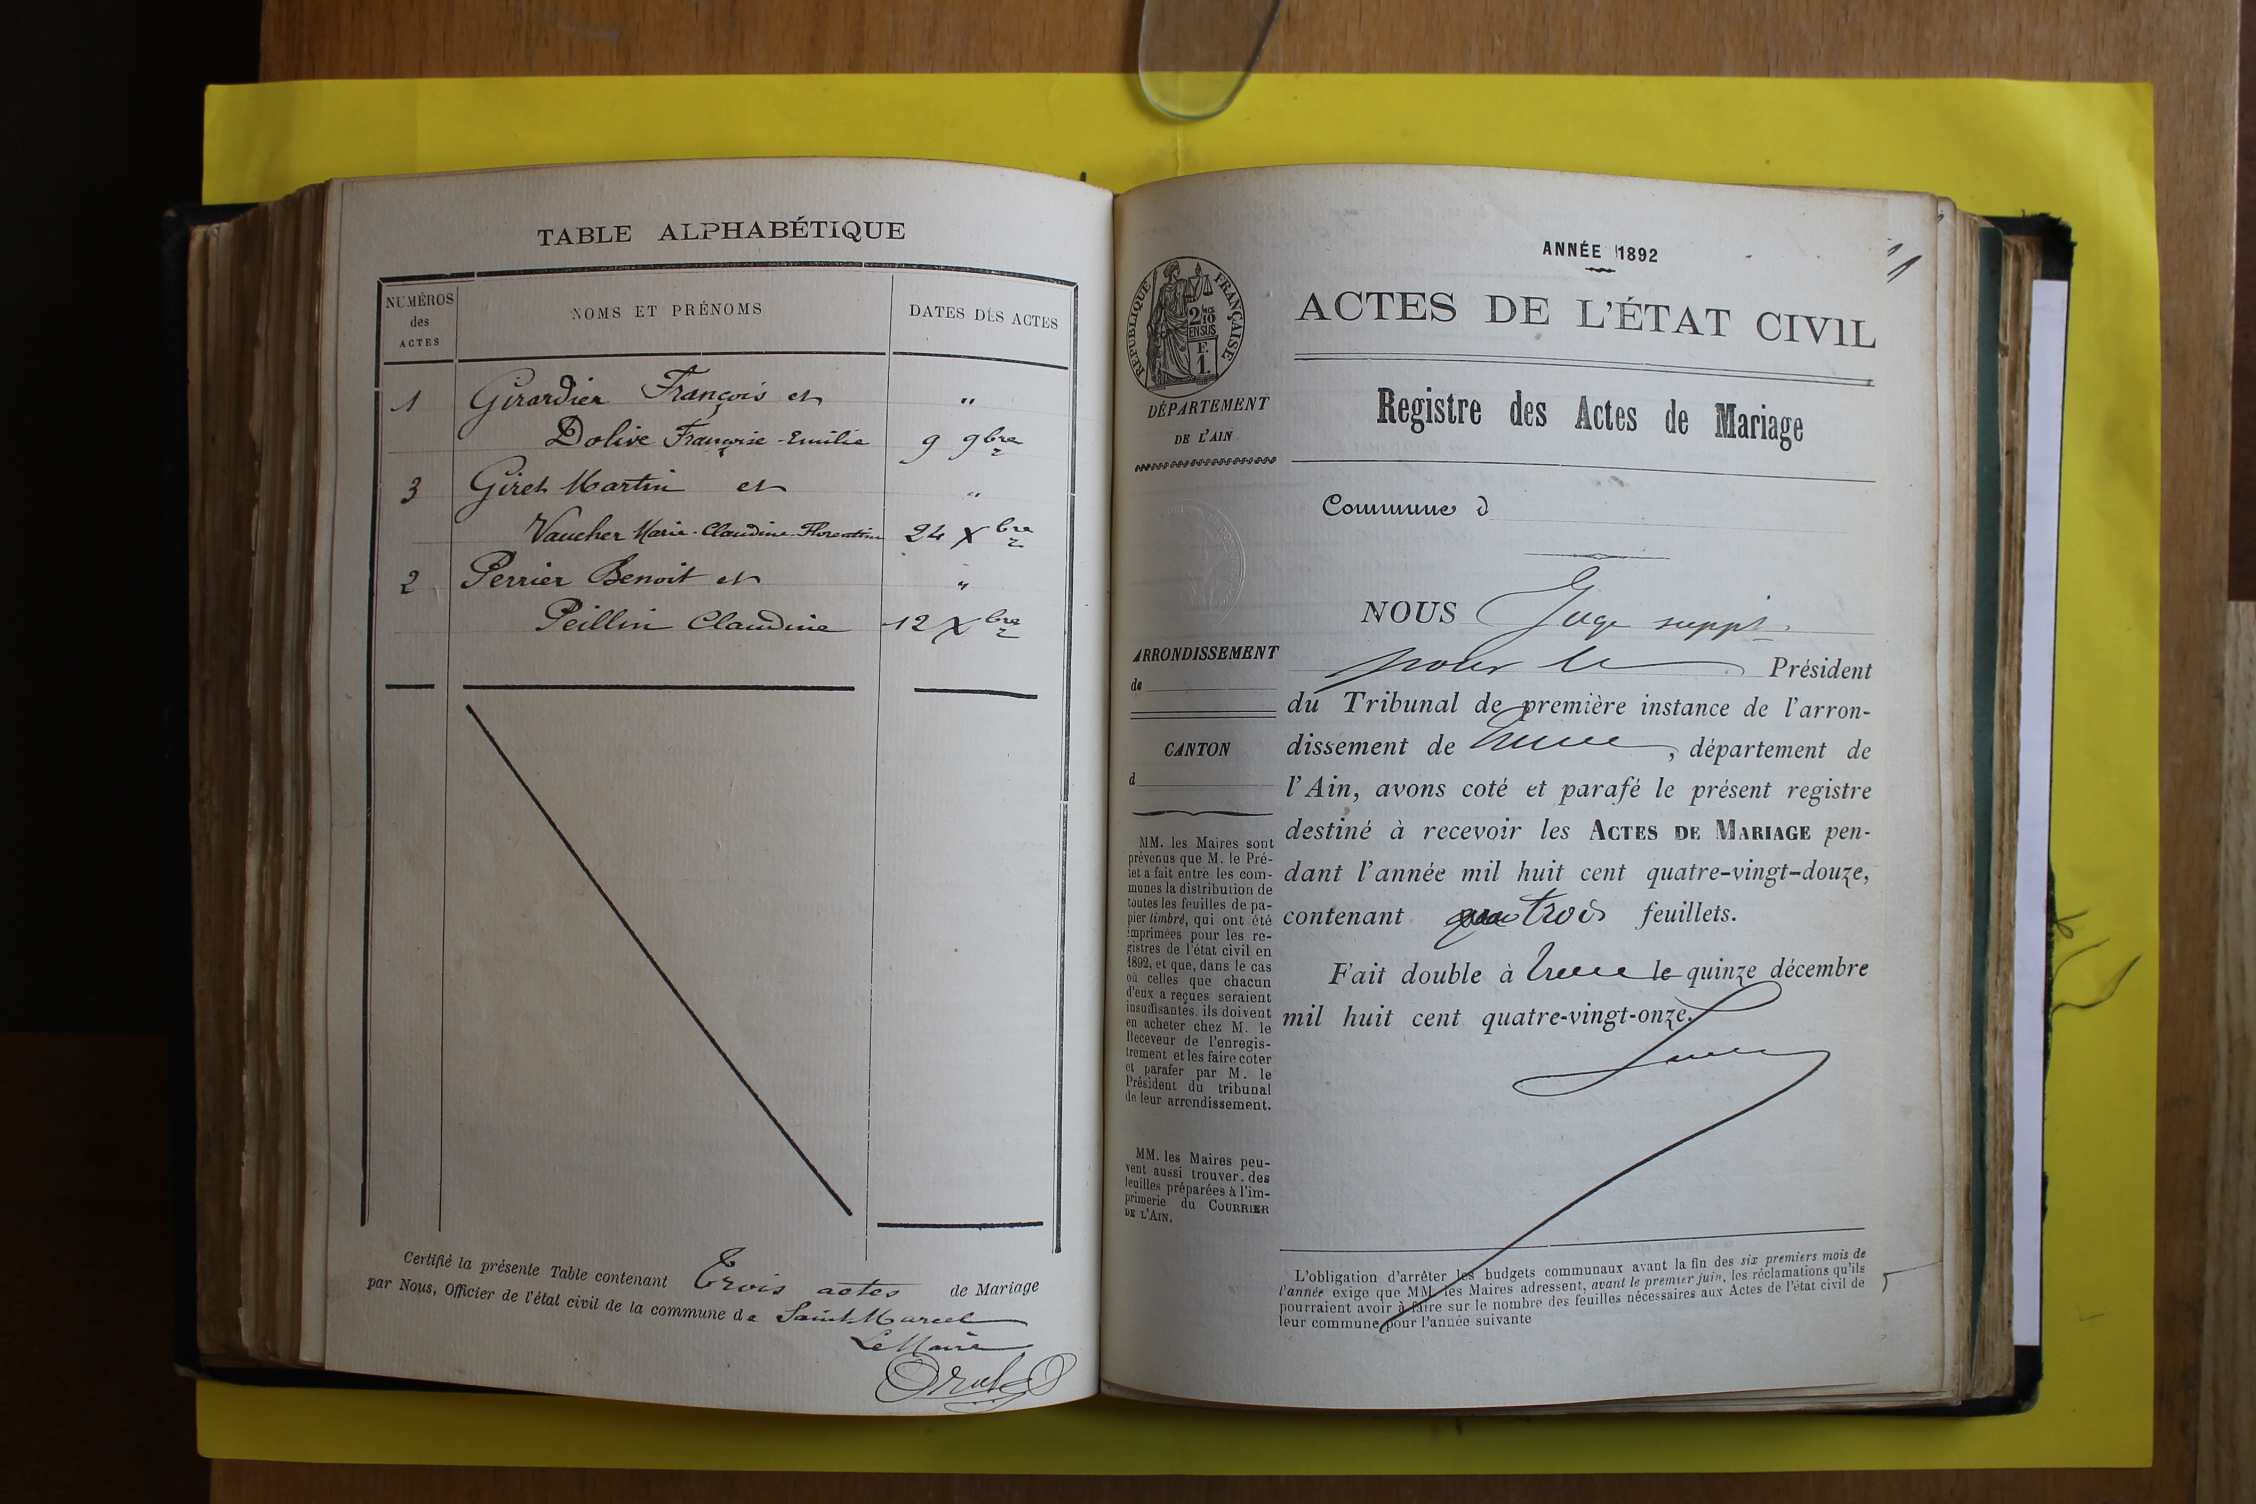 TABLE ALPHABÉTIQUE
NUMÉROS des ACTES
NOMS ET PRÉNOMS
DATES DES ACTES
1 Girardier François et "
Dolive Françoise-Emilie 9 9bre
3 Giret Martin et "
Vaucher Marie-Claudine-Florentine 24 Xbre
2 Perrier Benoit et "
Peillin Claudine 12 Xbre
Certifié la présente Table contenant Trois actes de Mariage
par Nous, Officier de l'état civil de la commune de Saint-Marcel
Le Maire
ANNÉE 1892
ACTES DE L'ÉTAT CIVIL
Registre des Actes de Mariage
Commune d
NOUS Juge suppt.
pour le Président
du Tribunal de première instance de l'arron-
dissement de , département de
l'Ain, avons coté et parafé le présent registre
destiné à recevoir les ACTES DE MARIAGE pen-
dant l'année mil huit cent quatre-vingt-douze,
contenant trois feuillets.
Fait double à le quinze décembre
mil huit cent quatre-vingt-onze.
L'obligation d'arrêter les budgets communaux avant la fin des six premiers mois de
l'année exige que MM. les Maires adressent, avant le premier juin, les réclamations qu'ils
pourraient avoir à faire sur le nombre des feuilles nécessaires aux Actes de l'état civil de
leur commune pour l'année suivante
RÉPUBLIQUE FRANÇAISE
2/10
EN SUS
F.
1.
DÉPARTEMENT
DE L'AIN
ARRONDISSEMENT
de
CANTON
d
MM. les Maires sont
prévenus que M. le Pré-
fet a fait entre les com-
munes la distribution de
toutes les feuilles de pa-
pier timbré, qui ont été
imprimées pour les re-
gistres de l'état civil en
1892, et que, dans le cas
où celles que chacun
d'eux a reçues seraient
insuffisantes, ils doivent
en acheter chez M. le
Receveur de l'enregis-
trement et les faire coter
et parafer par M. le
Président du tribunal
de leur arrondissement.
MM. les Maires peu-
vent aussi trouver des
feuilles préparées à l'im-
primerie du COURRIER
DE L'AIN.